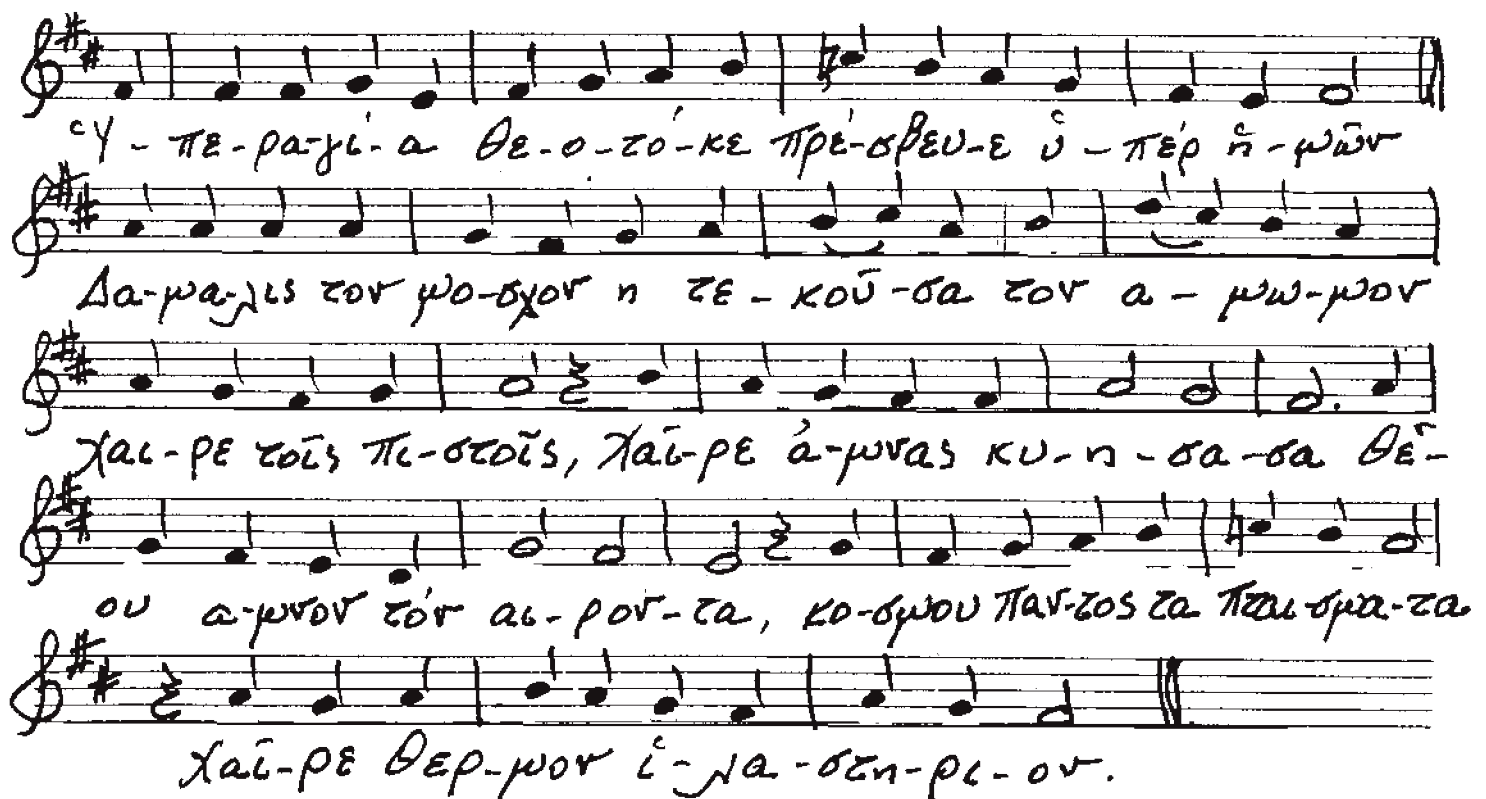 Ὑ-πε-ρα-γί-α Θε-ο-τό-κε πρέ-σβευ-ε ὑ-πέρ ἡ-μῶν
Δα-μα-λις τον μο-σχον η τε-κοῦ-σα τον α-μω-μον
Χαι-ρε τοῖς πι-στοῖς, Χαῖ-ρε ἀ-μνας κυ-η-σα-σα Θε-
ου α-μνον τόν αι-ρον-τα, κο-σμου παν-τος τα πται-σμα-τα
Χαῖ-ρε θερ-μον ἱ-λα-στη-ρι-ον.